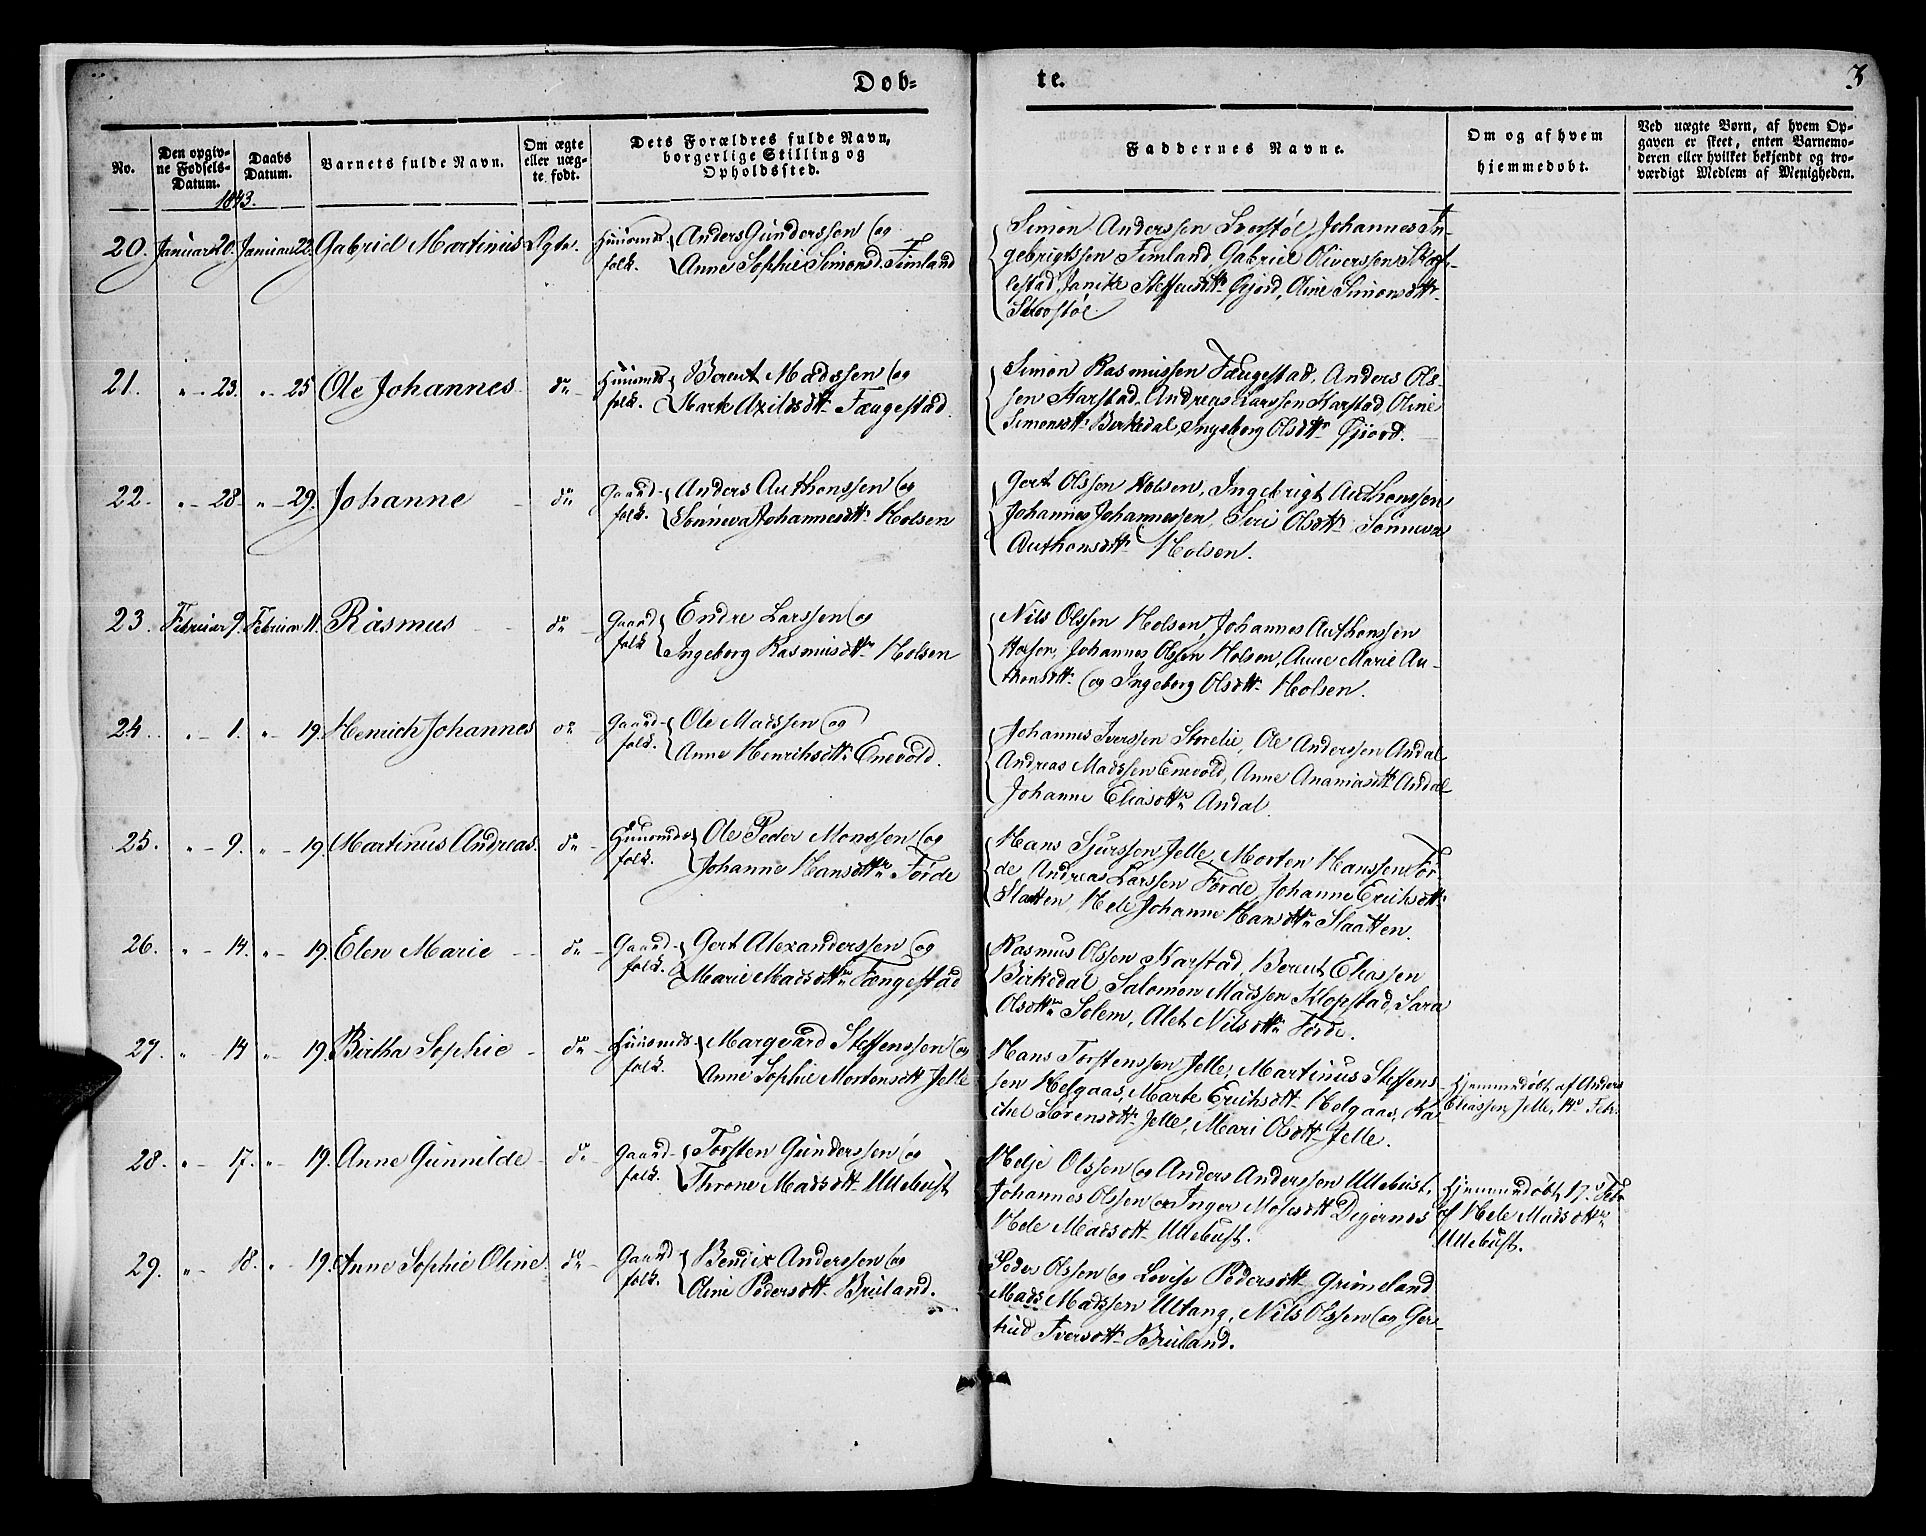 Døb-
te.
3
No.
Den opgiv-
ne Fødsels-
Datum.
Daabs
Datum.
Barnets fulde Navn.
Om ægte
eller uæg-
te født.
Dets Forældres fulde Navn,
borgerlige Stilling og
Opholdssted.
Faddernes Navne.
Om og af hvem
hjemmedøbt.
Ved uægte Børn, af hvem Op-
gaven er skeet, enten Barnemo-
deren eller hvilket bekjendt og tro-
værdigt Medlem af Menigheden.
1843.
20. Januar 20. Januar 22. Gabriel Martinus Ægte.
Huusmds
folk.
Anders Gunderssen og
Anne Sophie Simonsd. Fimland
Simon Anderssen Johannes In-
gebrigtssen Fimland, Gabriel Oliverssen
Steffensdttr Gjord, Oline Simonsdttr
21. " - 23. " - 25 Ole Johannes. do -
Huusmds
folk.
Berent Madssen og
Marte Axilsdttr Fængestad.
Simon Rasmussen Fængestad, Anders Ols-
sen Karstad, Andreas Larssen Karstad, Oline
Simonsdttr Birkedal, Ingeborg Olsdttr Gjord.
22. " - 28. " - 29. Johanne - do
Gaard-
folk.
Anders Anthonssen og
Sønneva Johannesdttr Holsen
Gert Olssen Holsen, Ingebrigt Anthonssen
Johannes Johannessen, Siri Olsdttr Sønneva
Anthonsdttr Holsen.
23. Februar 9. Februar 11. Rasmus - do -
Gaard
folk
Endre Larssen og
Ingeborg Rasmusdttr Holsen
Nils Olssen Holsen, Johannes Anthonssen
Holsen, Johannes Olssen Holsen, Anne Marie An-
thonsdttr og Ingeborg Olsdttr Holsen.
24. " - 1. " - 19. Henrich Johannes do -
Gaard-
folk.
Ole Madssen og
Anne Henrichsdttr Enevold.
Johannes Iverssen Storelie, Ole Anderssen Andal
Andreas Madssen Enevold, Anne Ananiasdttr Andal
Johanne Eliasdttr Andal.
25. " - 9. " - 19. Martinus Andreas. do -
Huusmds
folk.
Ole Peder Monssen og
Johanne Hansdttr Førde
Hans Sjurssen Jelle, Morten Hanssen Før-
de, Andreas Larssen Førde, Johanne Erichsdttr
Slatten, Nele Johanne Hansdttr Slaatten.
26. " - 14. " - 19. Elen Marie - do -
Gaard-
folk.
Gert Alexanderssen og
Marie Madsdttr Fængestad
Rasmus Olssen Karstad, Berent Eliassen
Birkedal, Salomon Madssen Klopstad, Sara
Olsdttr Solem, Alet Nilsdttr Førde.
27. " - 14 " - 19. Birtha Sophie - do -
Huusmds
folk.
Marqvard Steffenssen og
Anne Sophie Mortensdtt Jelle
Hans Torstenssen Jelle, Martinus Steffens-
sen Helgaas, Marte Erichsdtt Helgaas, Ra-
chel Sørensdttr Jelle, Mari Olsdtt Jelle.
Hjemmedøbt af Anders
Eliassen Jelle, 14d Feb.
28. " - 17. " - 19. Anne Gunnilde - do -
Gaard-
folk.
Torsten Gunderssen og
Throne Madsdtt Ullebust
Helje Olssen og Anders Anderssen Ullebust,
Johannes Olssen og Inger Mosesdtt Digernes
Nele Madsdtt Ullebust.
Hjemmedøbt 17d Feb
af Nele Madsdttr
Ullebust.
29. " - 18. " - 19. Anne Sophie Oline do -
Gaard
folk.
Bendix Anderssen og
Oline Pedersdtt Bruland.
Peder Olssen og Lovise Pedersdtt Grimeland
Mads Madssen Utang, Nils Olssen og Ger-
trud Iversdtt Bruland.